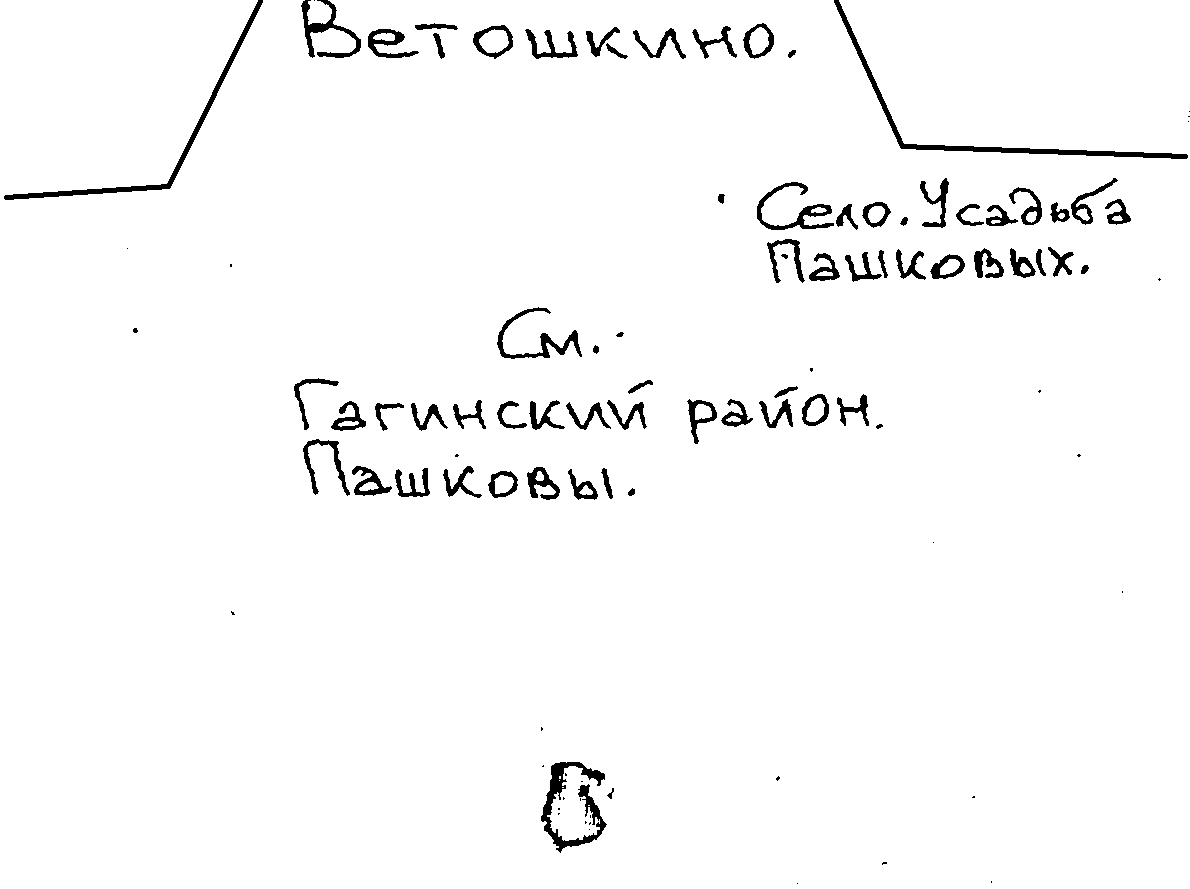 Ветошкино.
Село. Усадьба
Пашковых.
См.
Гагинский район.
Пашковы.